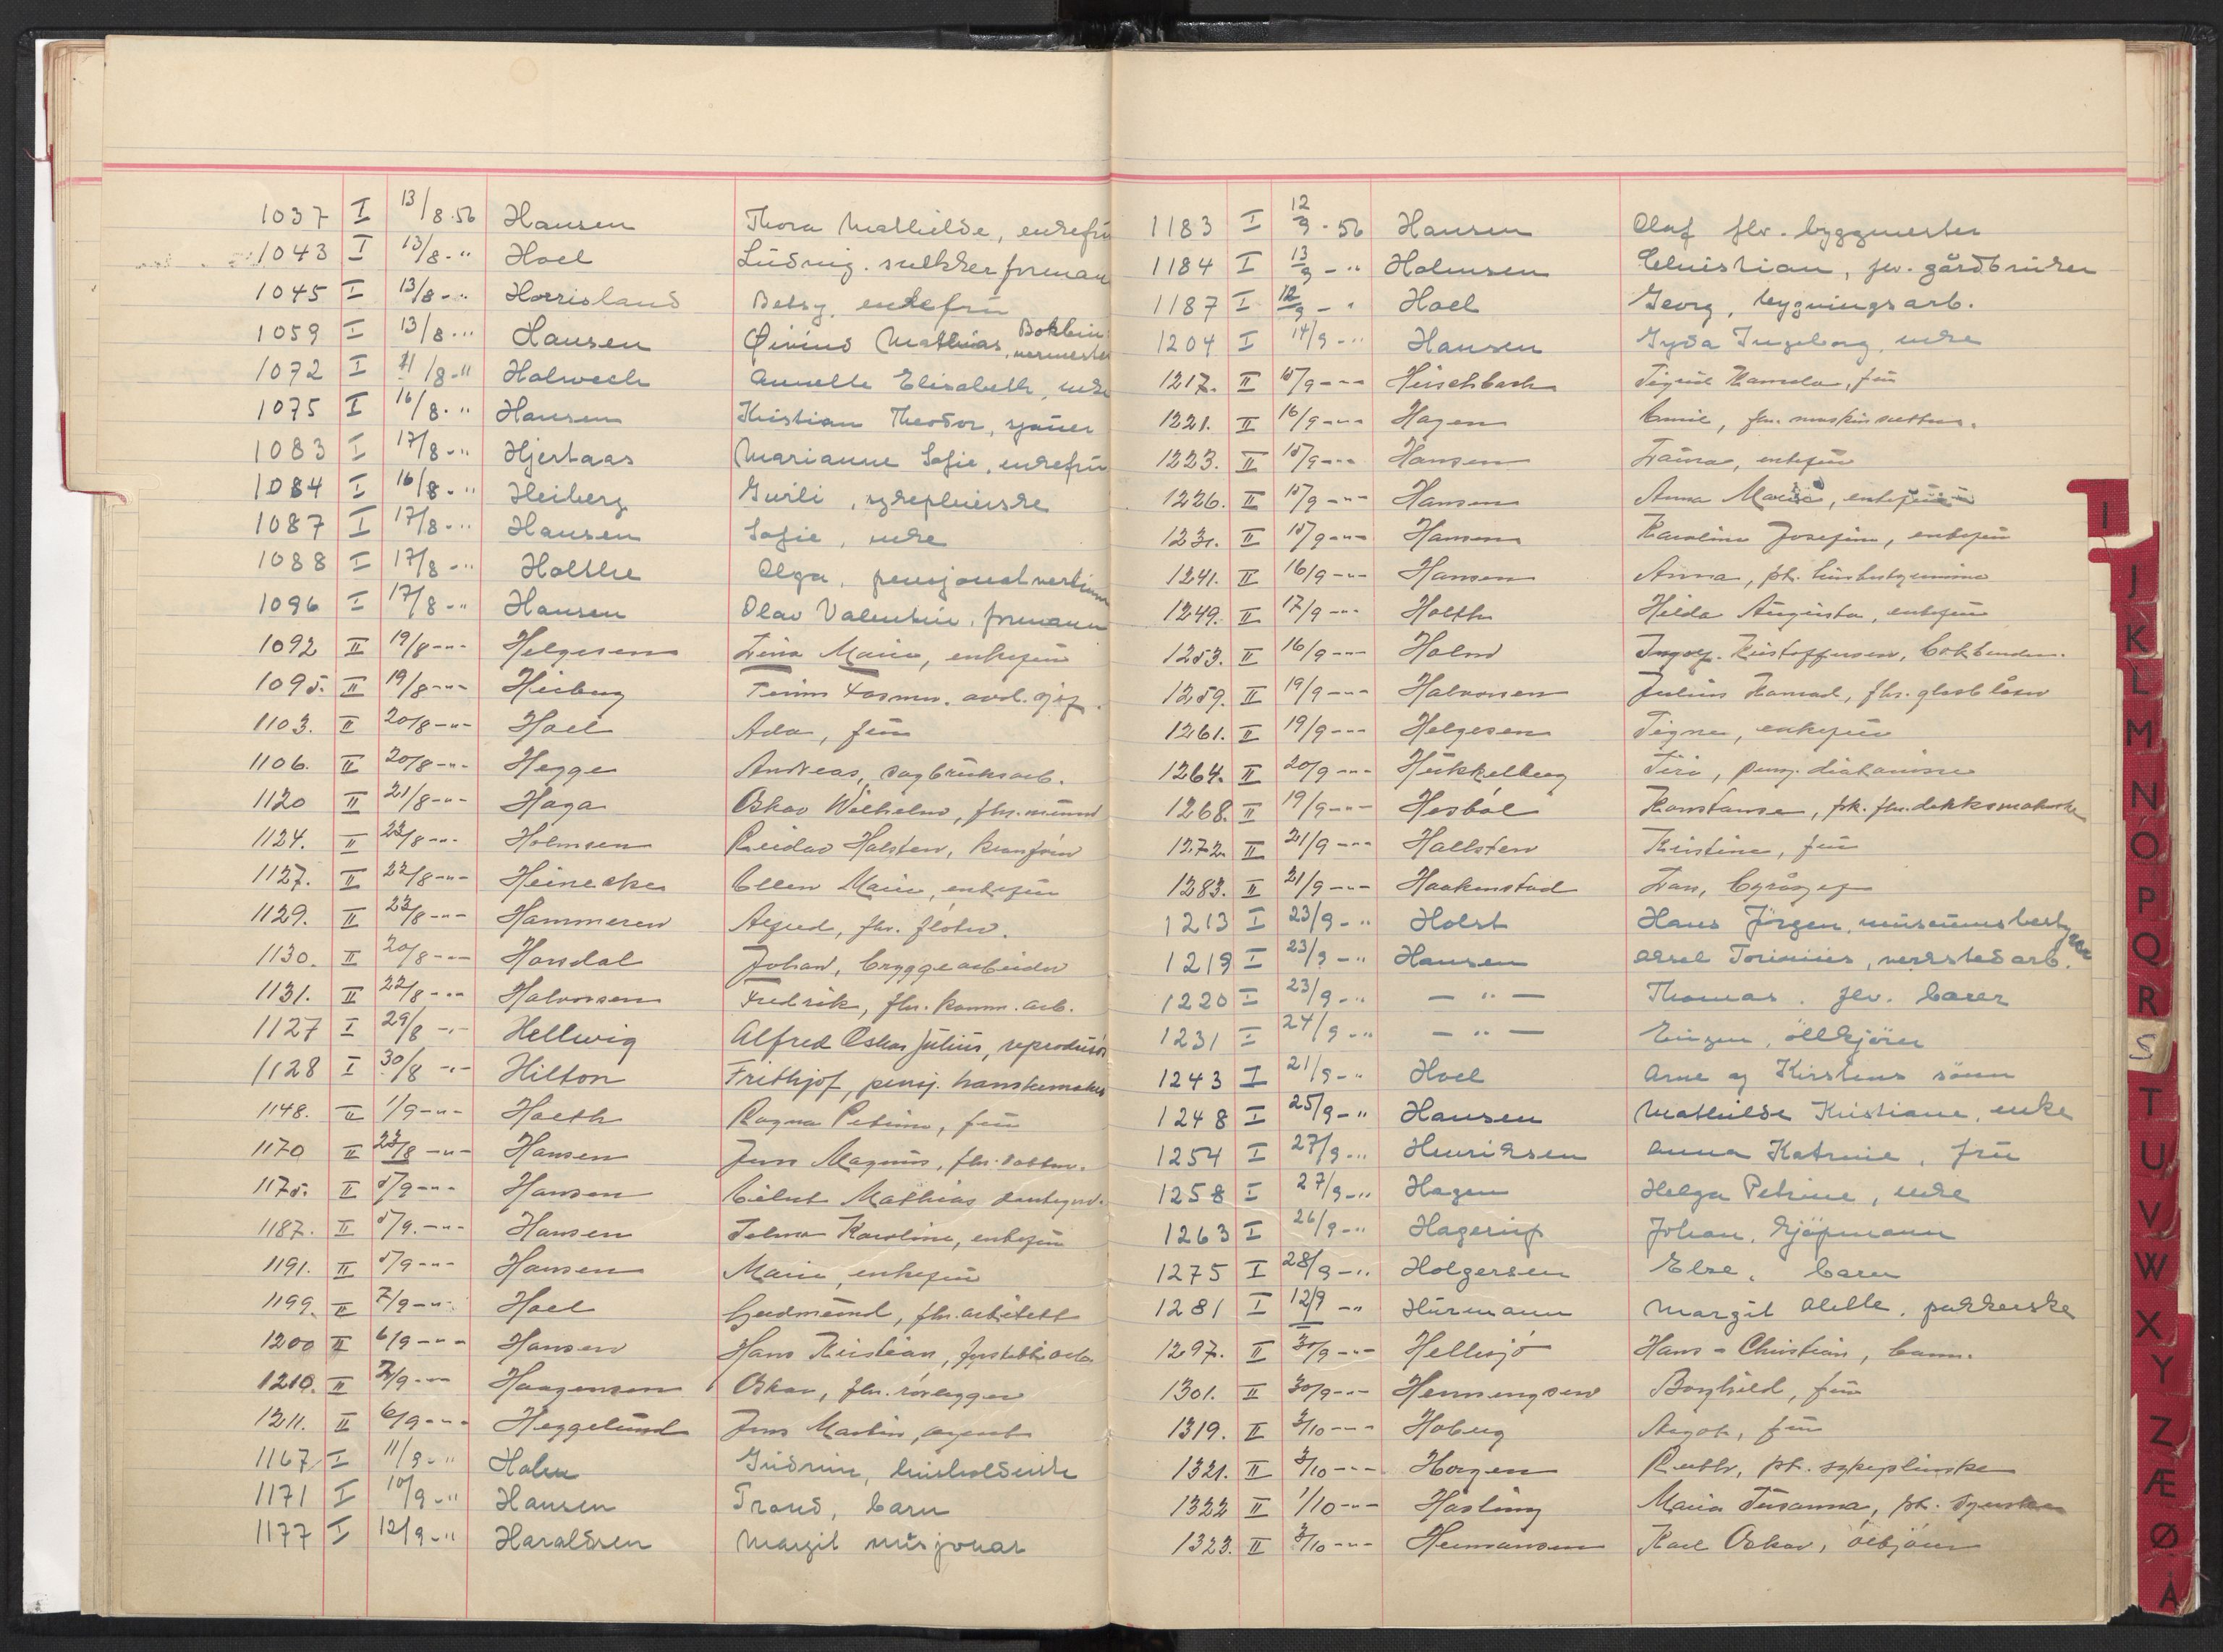 1037 I 13/8-56 Hansen Thora Mathilde, enkefrü
1043 I 13/8-" Hoel Lüdvig. formann
1045 I 13/8-" Horrisland Betsy, enkefrü
1059 I 13/8-" Hansen Øivind Mathias, Bokbin-
1072 I /8-" Holweck Annette Elisabeth, enke
1075 I 16/8-" Hansen Kristian Theodor, sjåuer
1083 I 17/8-" Hjertaas Marianne Sofie, enkefrü
1084 I 16/8-" Heiberg sykepleierske
1087 I 17/8-" Hansen Sofie, enke
1088 I 17/8-" Holthe Olga, pensjonatvertinne
1096 I 17/8-" Hansen Olav Valentin, formann
1092 II 19/8-"- Helgesen Lina Marie, enkefrü
1095. II 19/8-"- Heiberg avd. sjef.
1103. II 20/8-"- Hoel Ada, frü
1106. II 20/8-"- Hegge Andreas, sagbrüksarb.
1120 II 21/8-"- Haga Oskar Wilhelm, fhv.
1124. II 23/8-"- Holmsen Reidar Halsten,
1127. II 22/8-"- Heinecke Ellen Marie, enkefrü
1129. II 23/8-"- Hammeren fhv. fløter.
1130. II 20/8-"- Horsdal Johan, bryggearbeider
1131. II 22/8-"- Halvorsen Fredrik, fhv. komm. arb.
1127 I 29/8 -"- Hellwig Alfred Oskar Jülius,
1128 I 30/8 -"- Hilton Frithjof, pensj. hanskemaker
1148. II 1/9-"- Hoeth Ragna Petrine, frü
1170 II 23/8 -"- Hansen Jens Magnüs, fhv.
1175. II 5/9-"- Hansen Mathias
1187. II 5/9.-"- Hansen Karoline, enkefrü
1191. II 5/9-"- Hansen Marie, enkefrü
1199. II 7/9-"- Hoel Güdmünd, fhv. arkitekt
1200 II 6/9-"- Hansen Hans Kristian,
1210. II 7/9-"- Haagensen Oskar, fhv. rørlegger
1211. II 6/9-"- Heggelünd Jens Martin, agent
1167 I 11/9-" Holm Güdrün,
1171 I 10/9-" Hansen Trond, barn
1177 I 12/9-" Haraldsen Margit misjonær
1183 I 12/9-56 Hansen Olaf fhv. byggmester
1184 I 13/9-" Holmsen Christian, fhv. gårdbrüker
1187 I 12/9-" Hoel Georg, bygningsarb.
1204 I 14/9-" Hansen Gyda Ingeborg, enke
1217. II 15/9-"- Hirschbach Sigrid frü
1221. II 16/9-"- Hagen Emil, fhv. maskinsetter.
1223. II 15/9-"- Hansen Laura, enkefrü
1226. II 15/9-"- Hansen Anna Marie, enkefrü
1231. II 15/9-"- Hansen Karoline Josefine, enkefrü
1241. II 16/9-"- Hansen Anna, frk.
1249. II 17/9-"- Holth Hilda Aügüsta, enkefrü
1253. II 16/9-"- Holm Ingolf Kristoffersen, bokbinder.
1259. II 19/9-"- Halvorsen Julius Konrad, fhv. glassblåser
1261. II 19/9-"- Helgesen Signe, enkefrü
1264. II 20/9-"- Hükkelberg Siri, pensj. diakonisse
1268. II 19/9-"- Hesbøl Konstanse, frk. fhv.
1272. II 21/9-"- Hallsten Kristine, frü
1283. II 21/9-"- Haakenstad Lars, byråsjef
1213 I 23/9-" Holst Hans Jørgen, müseümsbestyrer
1219 I 23/9-" Hansen Aksel verkstedarb.
1220 I 23/9-" — " — Thomas. fhv. baker
1231 I 24/9-" — " — ølkjører
1243 I 21/9-" Hoel Arne og Kirstens sønn
1248 I 25/9-" Hansen Mathilde Kristiane, enke
1254 I 27/9-" Henriksen Anna Katrine, frü
1258 I 27/9-" Hagen Helga Petrine, enke
1263 I 26/9-" Hagerüp Johan, kjøpmann
1275 I 28/9-" Holgersen Else, barn
1281 I 12/9 -" Hürmann Margit pakkerske
1297. II 30/9-"- Hellesjø Hans-Christian, barn.
1301. II 30/9-"- Henningsen Borghild, frü
1319. II 3/10-"- Hoberg Aagot, frü
1321. II 3/10-"- Horgen Rüth, frk. sykepleierske
1322 II 1/10-"- Hasling Maria Süsanna, frk.
1323. II 3/10-"- Hermansen Karl Oskar, ølkjører
I
J
K
L
M
N
O
P
Q
R
S
T
U
V
W
X
Y
Z
Æ
Ø
Å